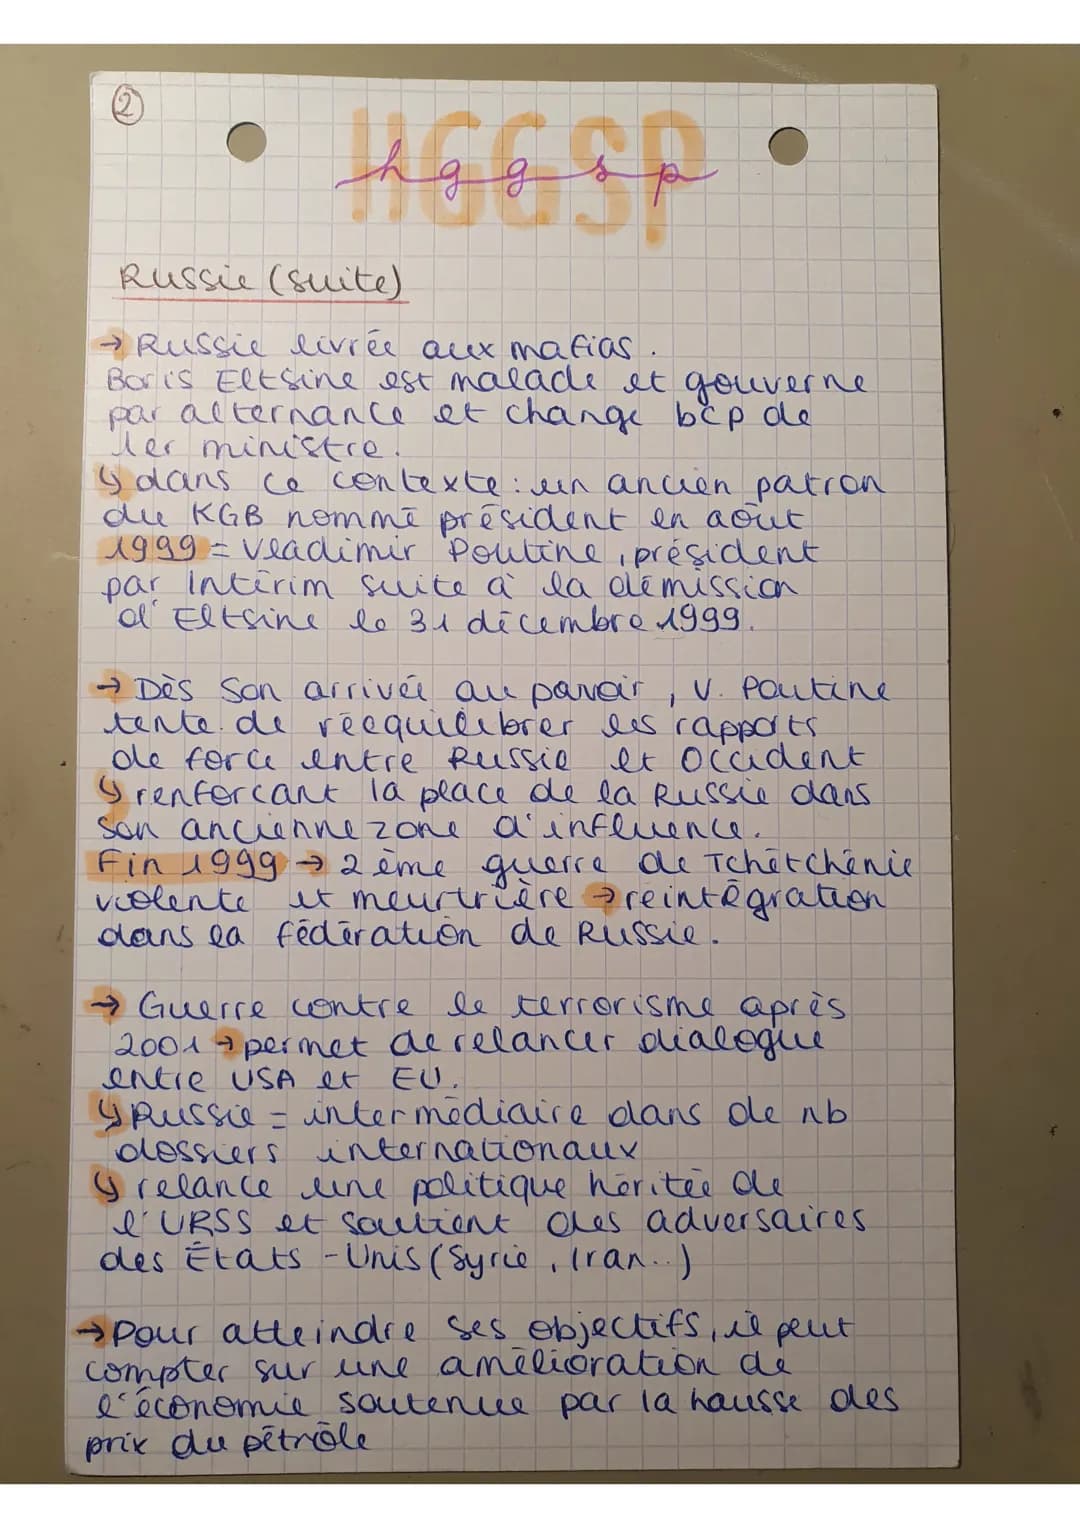 2
HGGSP
hggsp
Russie (suite)
→ Russie livrée aux mafias.
Boris Eltsine est malade et gouverne
par alternance et change bcp de
1er ministre.
↳ dans ce contexte : un ancien patron
du KGB nommé président en août
1999 = Vladimir Poutine, président
par intérim suite à la démission
d'Eltsine le 31 décembre 1999.
→ Dès son arrivée au pouvoir, V. Poutine
tente de rééquilibrer les rapports
de force entre Russie et Occident
↳ renforcant la place de la Russie dans
son ancienne zone d'influence.
Fin 1999 → 2ème guerre de Tchétchénie
violente et meurtrière → reintégration
dans la fédération de Russie.
→ Guerre contre le terrorisme après
2001 → permet de relancer dialogue
entre USA et EU.
↳ Russie = intermédiaire dans de nb
dossiers internationaux
↳ relance une politique héritée de
l'URSS et soutient des adversaires
des États-Unis (Syrie, Iran..)
→ Pour atteindre ses objectifs, il peut
compter sur une amélioration de
l'économie soutenue par la hausse des
prix du pétrole